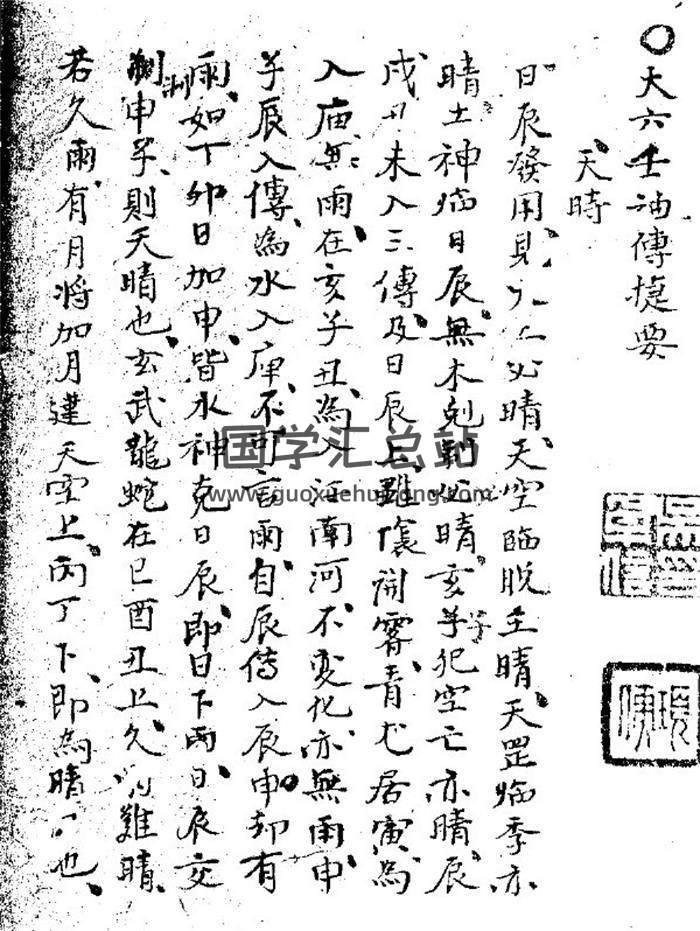 ○大六壬神傳捷要
天時
日辰發用見 必晴、天空臨脱主晴、天罡临季亦
晴土神临日辰、無木剋制必晴、亥子犯空亡亦晴、辰
戌丑未入三傳及日辰上、雖 開霽、青龙居寅為
入庙無雨、在亥子丑、為入江南河、不变化、亦無雨、申
子辰入傳、為水入庫、不可言雨、自辰传入辰申、却有
雨、如丁卯日加申、皆水神克日辰、即日下雨、日辰交
制申子、則天晴也、玄武龍蛇在巳酉丑上、久 難晴、
若久雨、有月將加月建天空上、丙丁下、即為晴 也、
国学汇总站
www.guoxuehuizong.com